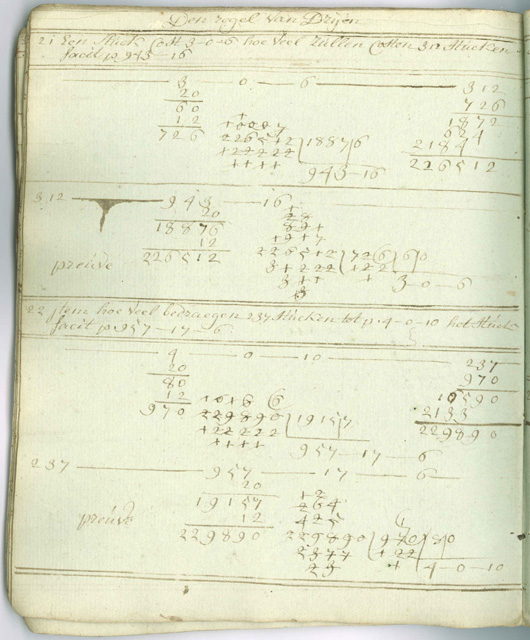 Den regel van Drijen
21 Een stuck Cost 3-0-6 hoe veel zullen Costen 312 stucken
facit p. 943-16
3 0 6 312
20 726
60 1872
12 624
726 2184
226512
18876
943-16
312 943 16
20
18876
12
226512
726 60
3-0-6
preúve
22 jtem hoe veel bedraegen 237 stucken tot p. 4-0-10 het stuck
facit p. 957-17-6
4 0 10 237
20 970
80 16590
12 2133
970 229890
19157
957-17-6
237 957 17 6
20
19157
12
229890
229890 970
4-0-10
preúve